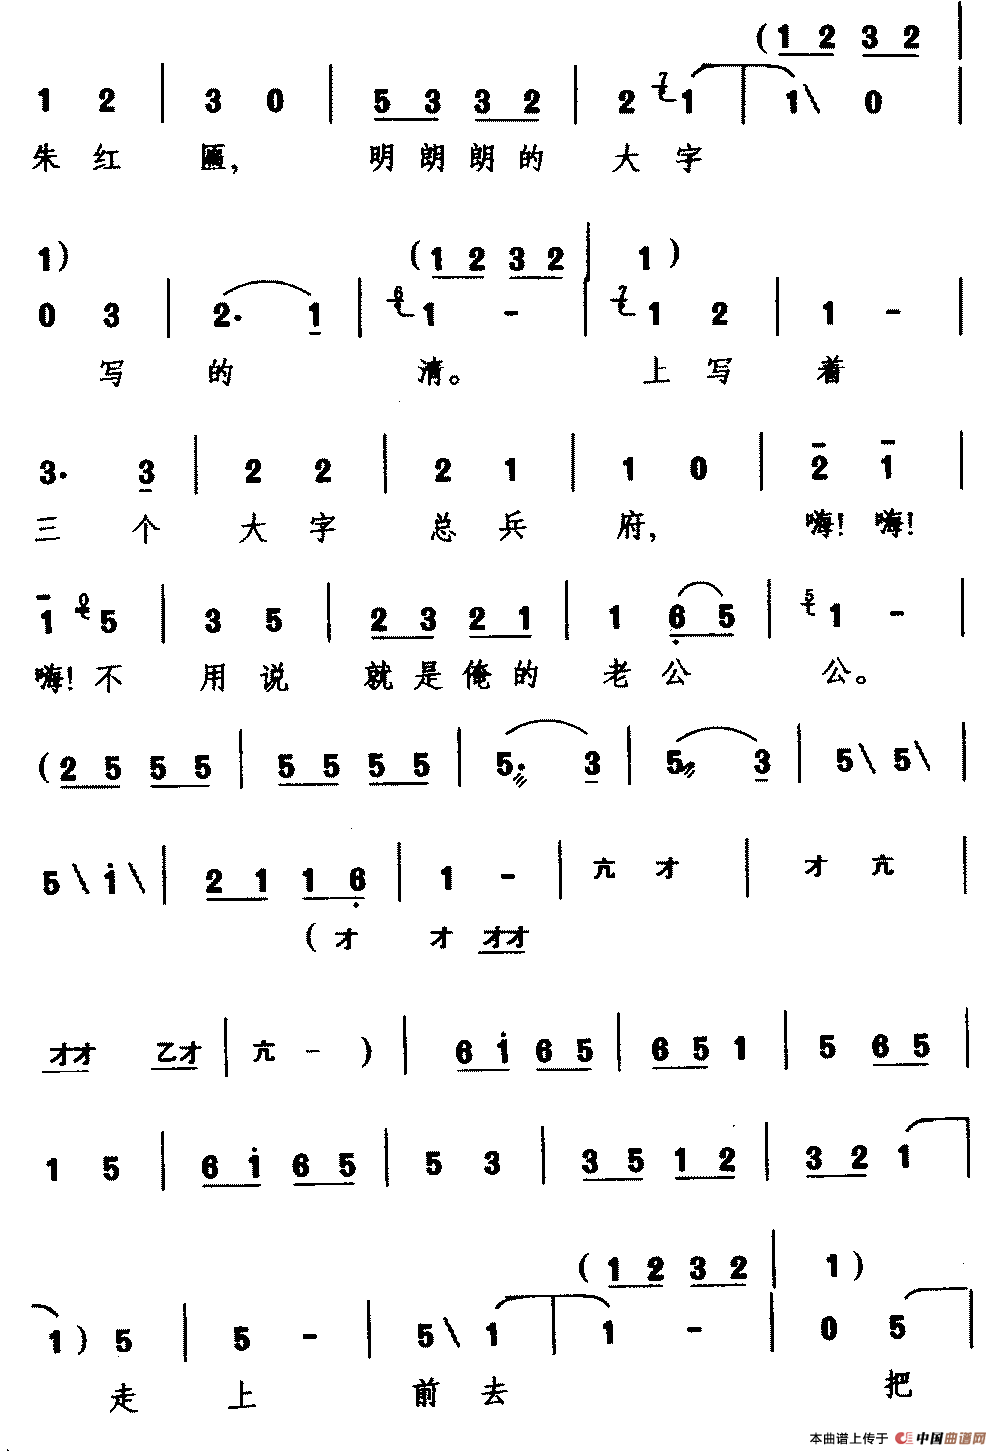 (1 2 3 2 |
1 2 | 3 0 | 5 3 3 2 | 2 7 1 | 1\ 0 |
朱 红 匾, 明 朗 朗 的 大 字
1) (1 2 3 2 | 1)
0 3 | 2. 1 | 6 1 - | 7 1 2 | 1 - |
写 的 清。 上 写 着
3. 3 | 2 2 | 2 1 | 1 0 | 2 1 |
三 个 大 字 总 兵 府, 嗨! 嗨!
1 0 5 | 3 5 | 2 3 2 1 | 1 6 5 | 5 1 - |
嗨! 不 用 说 就 是 俺 的 老 公 公。
(2 5 5 5 | 5 5 5 5 | 5. 3 | 5. 3 | 5\ 5\ |
5\ i\ | 2 1 1 6 | 1 - | 亢 才 | 才 亢 |
(才 才 才才
才才 乙才 | 亢 - ) | 6 i 6 5 | 6 5 1 | 5 6 5 |
1 5 | 6 i 6 5 | 5 3 | 3 5 1 2 | 3 2 1 |
(1 2 3 2 | 1)
1) 5 | 5 - | 5\ 1 | 1 - | 0 5 |
走 上 前 去 把
本曲谱上传于 中国曲谱网